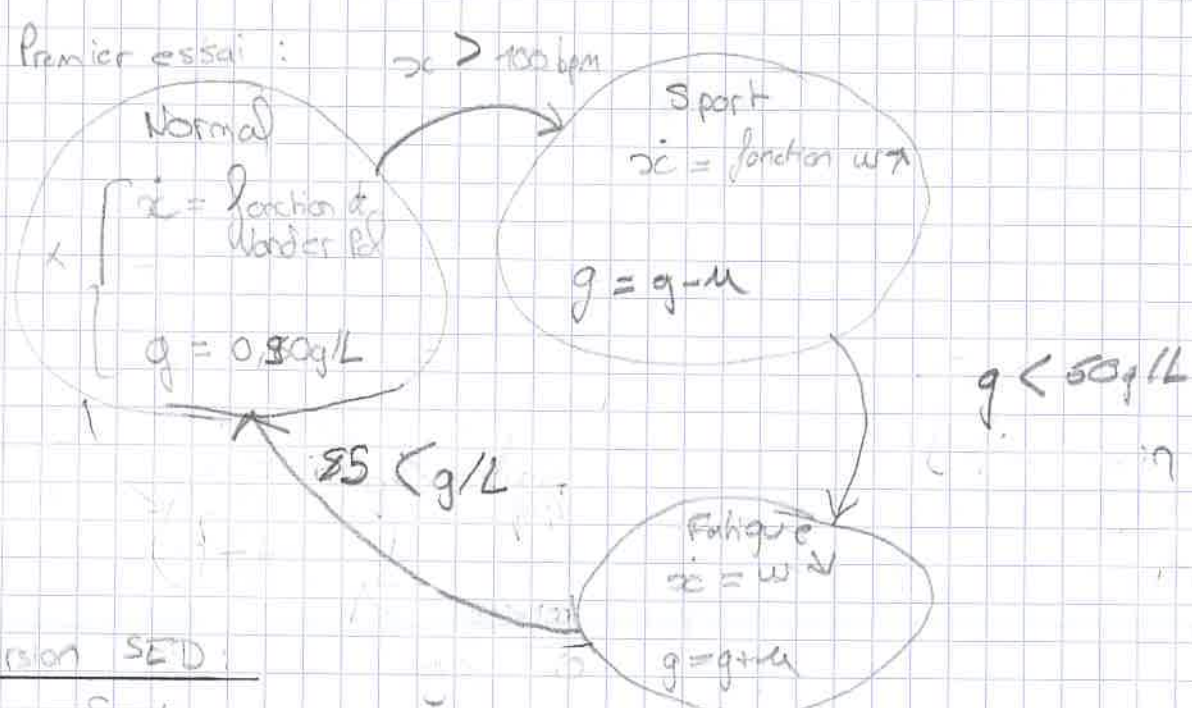 Premier essai :
x > 100 bpm
Normal
ẋ = fonction de
Vander Pol
g = 0,80g/L
Sport
ẋ = fonction w↗
g = g-u
g < 50g/L
85 < g/L
Fatigue
ẋ = w ↘
g = g+u
rsion SED :